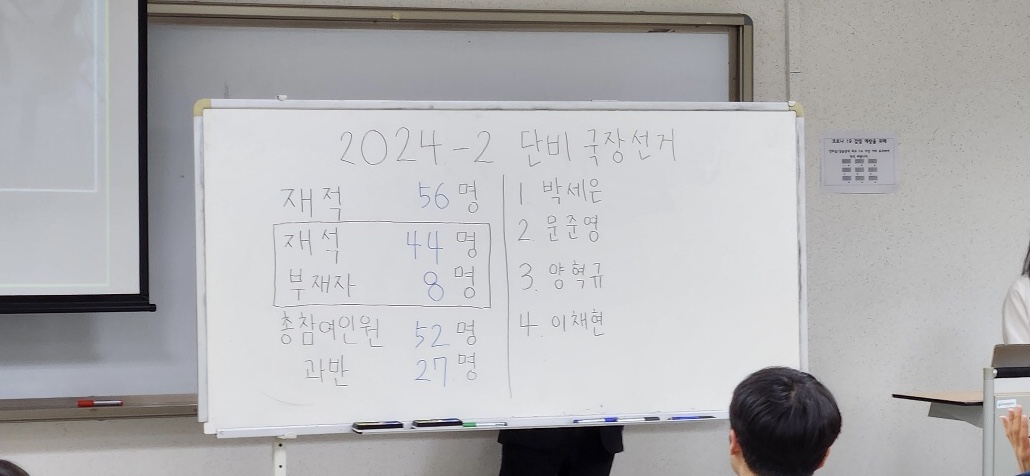 2024-2 단비 국장선거
재적 56명
재석 44명
부재자 8명
총참여인원 52명
과반 27명
1 박세은
2. 문준영
3. 양혁규
4. 이채현